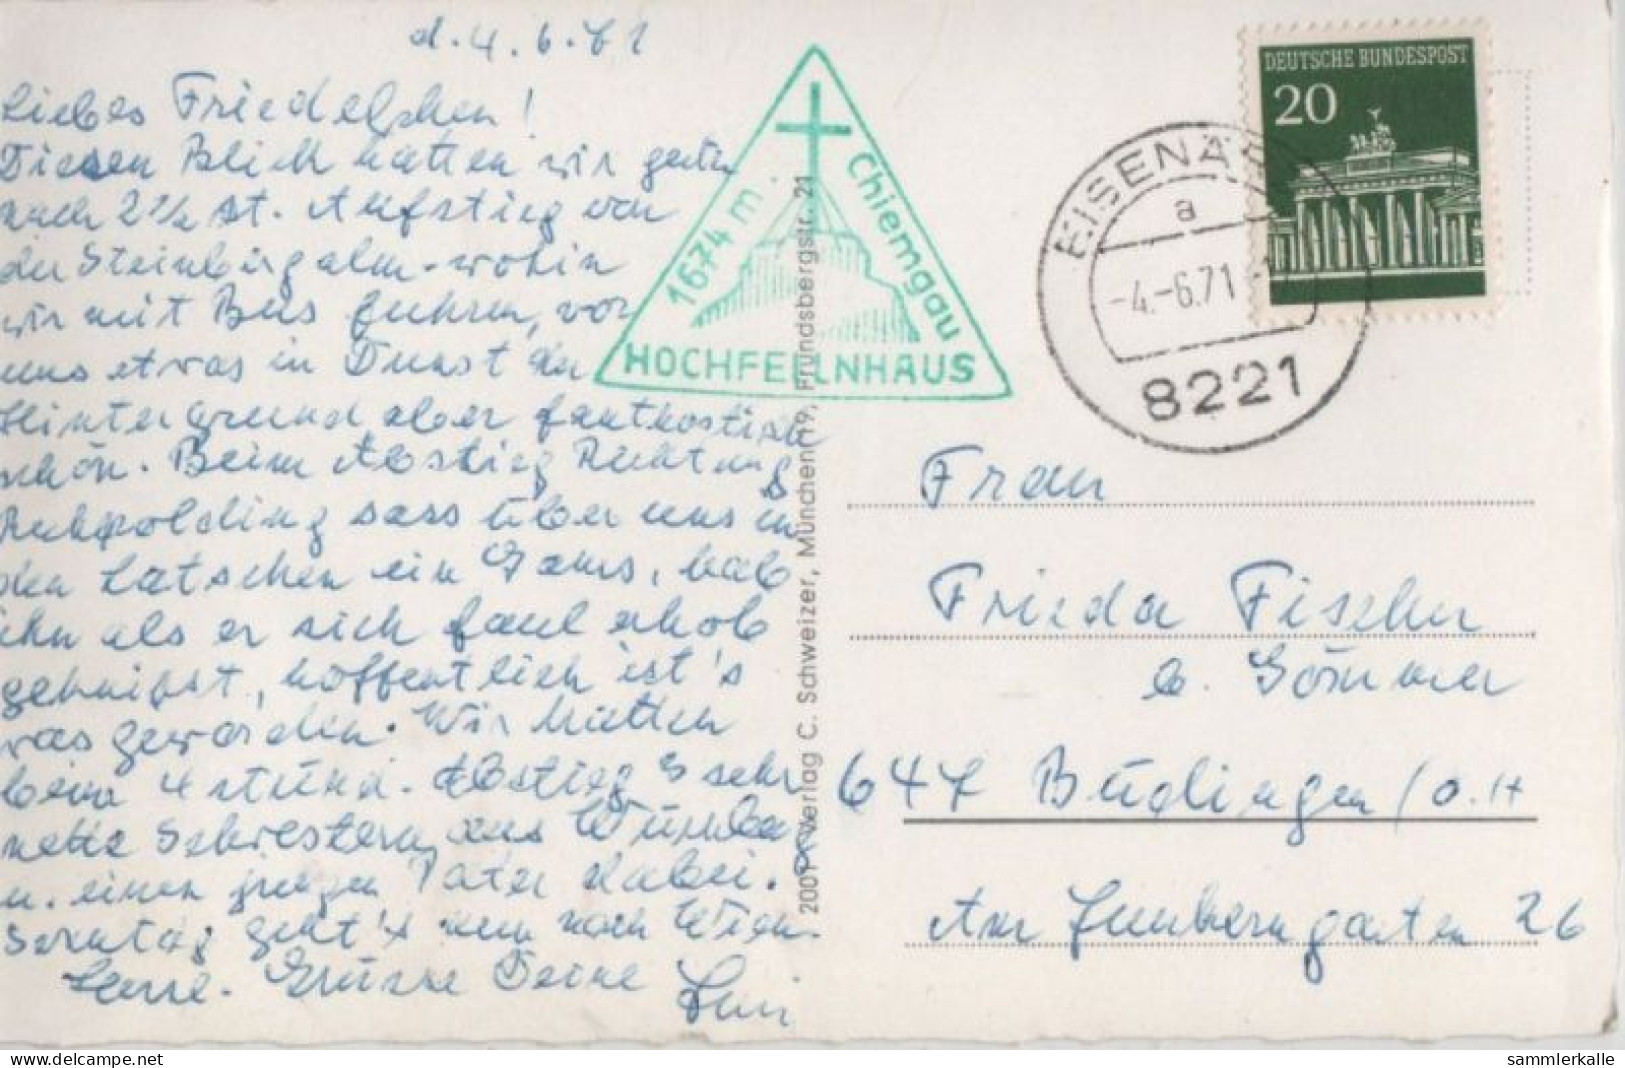 d. 4.6.71
Liebes Friedelchen!
Diesen Blick hatten wir gestern
nach 2 ½ St. Aufstieg von
der Steinbergalm - wohin
wir mit Bus fuhren, vor
uns etwas in Dunst der
Hintergrund aber fantastisch
schön. Beim Abstieg Richtung
Ruhpolding sass über uns in
den Latschen ein Gams, hab
ihn als er sich faul erhob
geknipst, hoffentlich ist's
was geworden. Wir hatten
beim 4 stünd. Abstieg 3 sehr
nette Schwestern aus
u. einen jungen Pater dabei.
Sonntag geht's nun nach Wien.
Grüsse Deine
1674 m
Chiemgau
HOCHFELLNHAUS
2001 Verlag C. Schweizer, München 19, Frundsbergstr. 21
DEUTSCHE BUNDESPOST
20
EISENÄR
a
-4.-6.71
8221
Frau
Frieda Fischer
b. Sömmer
647 Büdingen / O.H
Am 26
sammlerkalle
the-delcampe.net